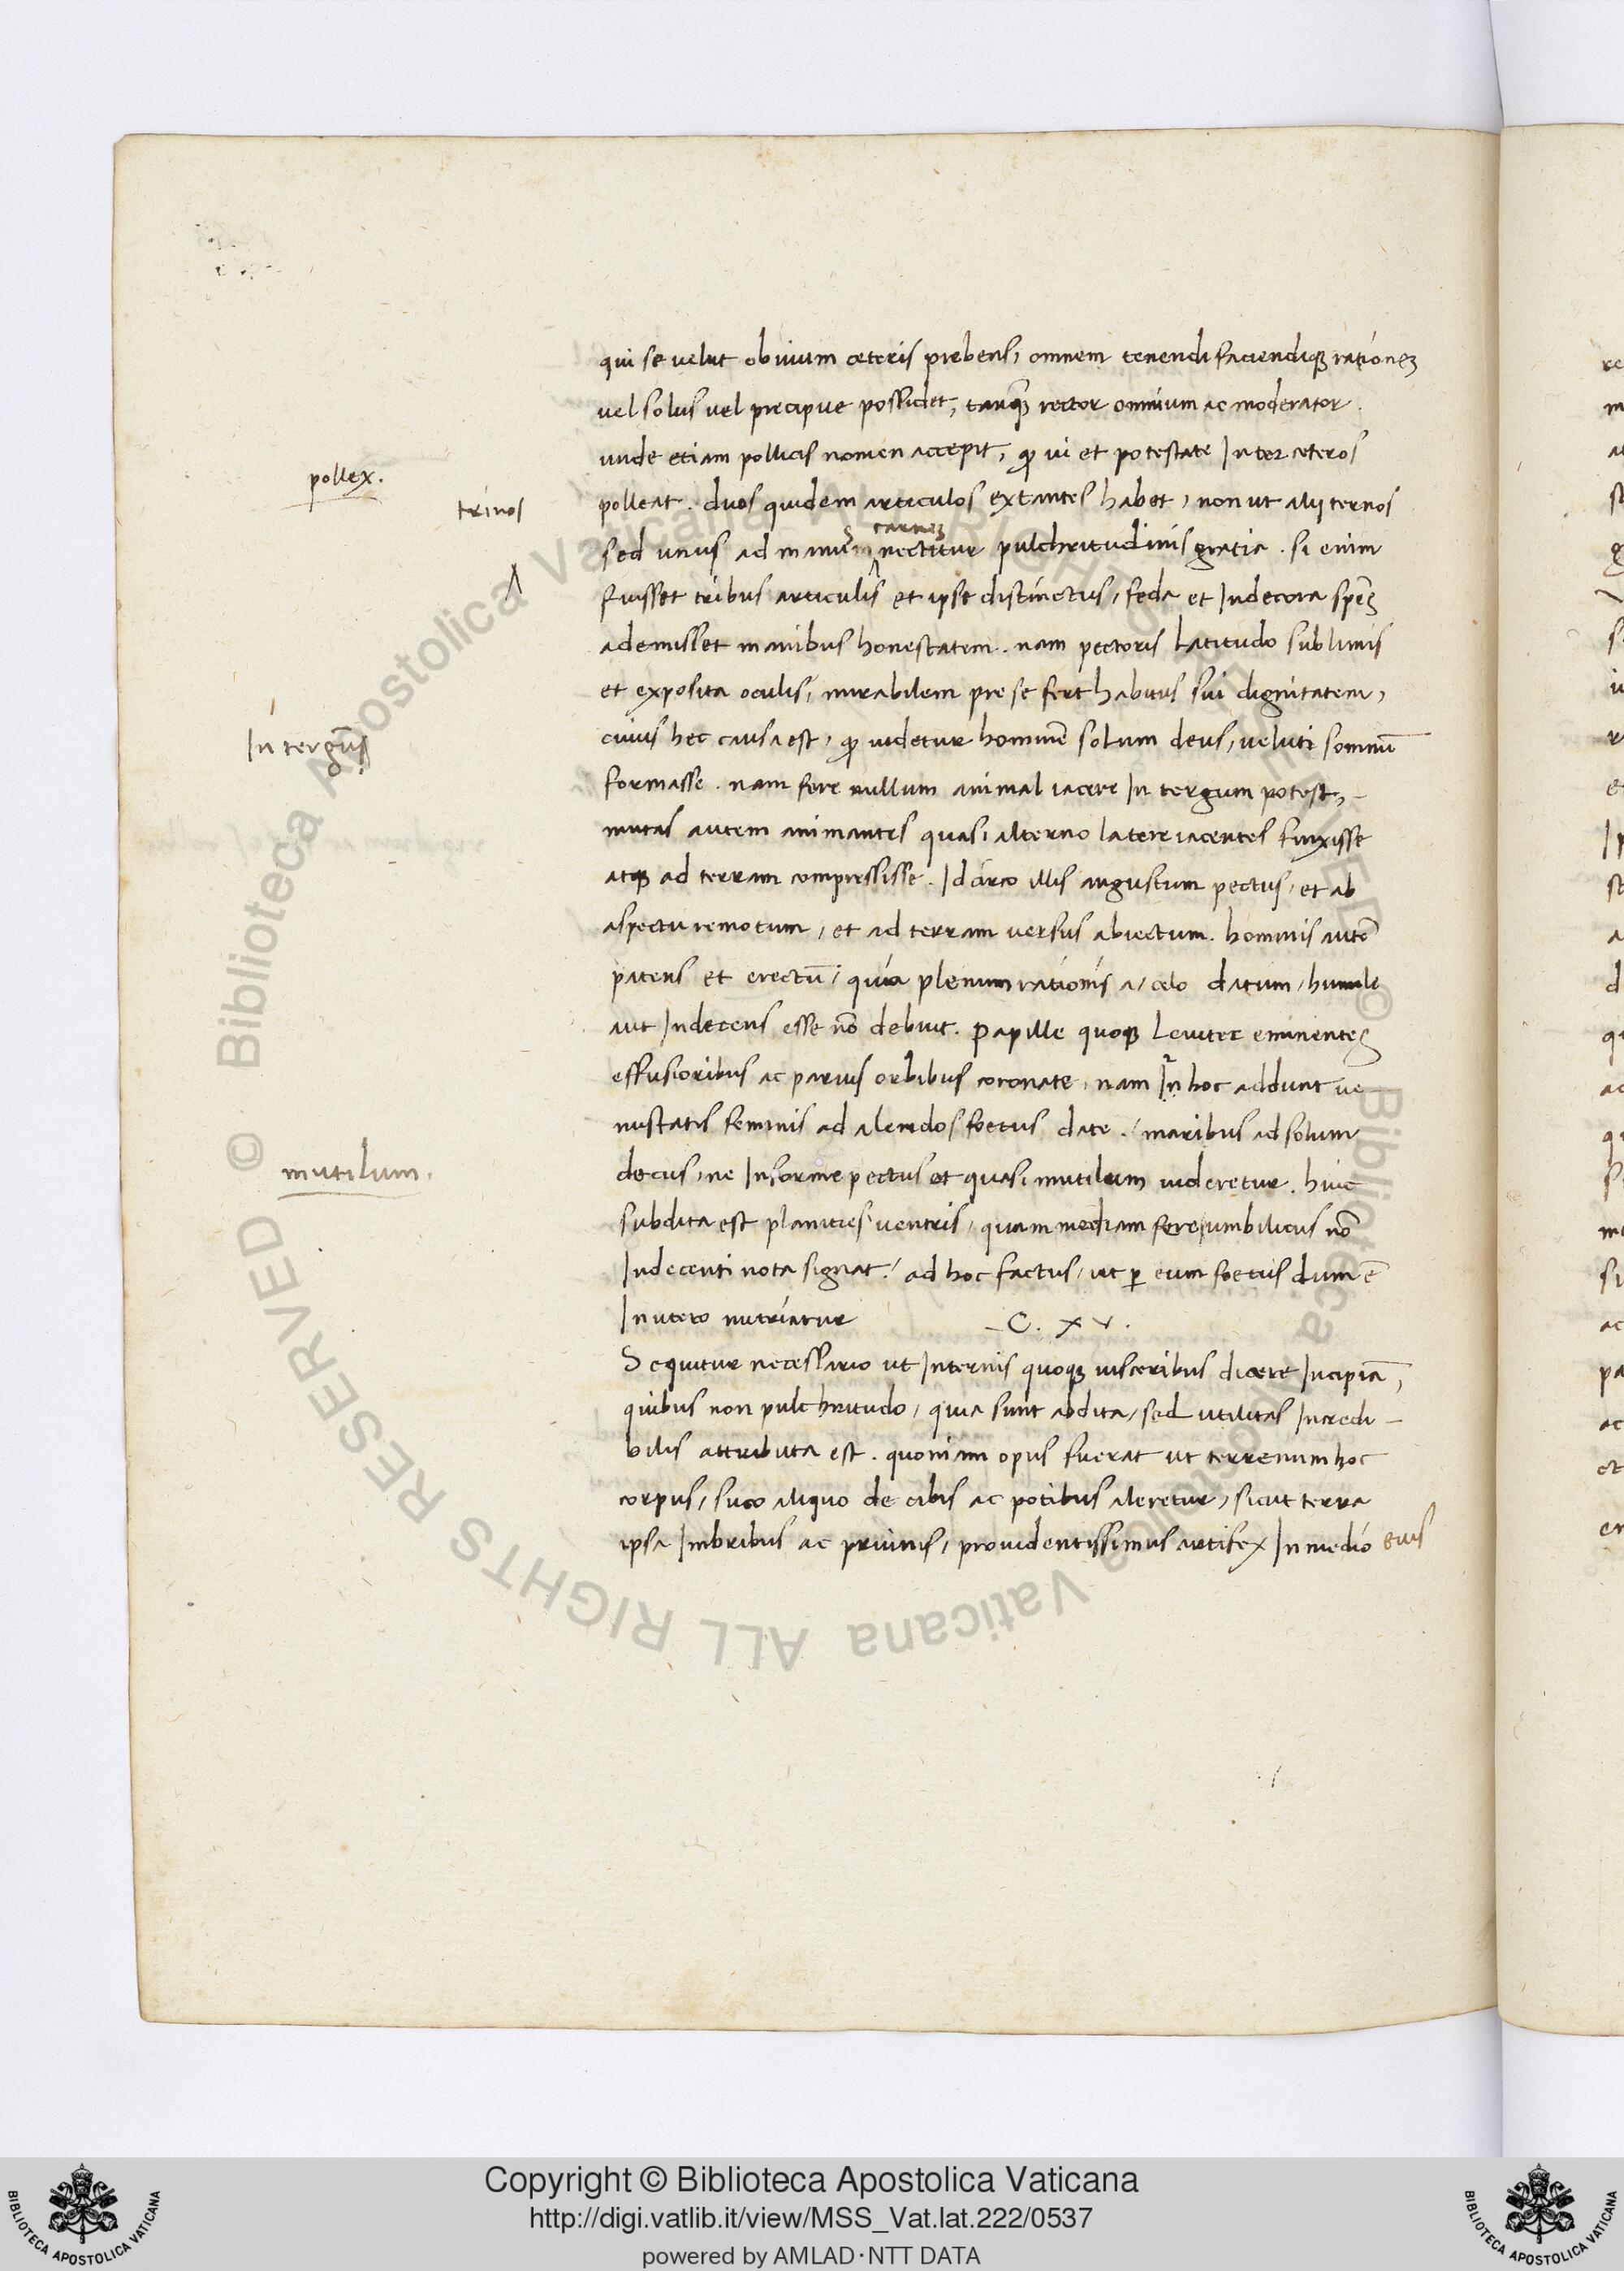 qui se velut obuium ceteris prebens, omnem tenendi faciendiqꝫ rationeꝫ
vel solus vel precipue possidet, tanqꝫ rector omnium ac moderator.
unde etiam pollicis nomen accepit, ꝙ ui et potestate Inter ceteros
pollex.
polleat. duos quidem articulos extantes habet, non ut alij ternos
trinos
carneꝫ
sed unus ad manum nectitur pulchritudinis gratia. si enim
fuisset tribus articulis et ipse distinctus, feda et Indecora spēs
ademisset manibus honestatem. nam pectoris Latitudo sublimis
et exposita oculis, mirabilem pre se fert habitus sui dignitatem,
cuius hec causa est, ꝙ uidetur hominē solum deus, veluti somnū
In tergū
formasse. nam fere nullum animal iacere In tergum potest,
mutas autem animantes quasi alterno latere iacentes finxisse
atqꝫ ad terram compressisse. Idcirco illis angustum pectus, et ab
aspectu remotum, et ad terram versus abiectum. hominis autē
patens et erectū, quia plenum rationis a, celo datum, humile
aut Indecens esse nō debuit. papille quoqꝫ Leuiter eminentes
effusioribus ac paruis orbibus coronate, nam In hoc addunt ve
nustatis feminis ad alendos foetus date, maribus ad solum
mutilum.
decus, ne Informe pectus et quasi mutilum uideretur. huic
subdita est planicies ventris, quam mediam fere umbilicus nō
Indecenti nota signat, ad hoc factus, ut ꝑ eum foetus dum ē
In utero nutriatur C. XV.
Sequitur necessario ut Internis quoqꝫ uisceribus dicere Incipiā,
quibus non pulchritudo, quia sunt abdita, sed utilitas Incredi-
bilis attributa est. quoniam opus fuerat ut terrenum hoc
corpus, suco aliquo de cibis ac potibus aleretur, sicut terra
ipsa Imbribus ac pruinis, prouidentissimus artifex In medio eius
Copyright © Biblioteca Apostolica Vaticana
http://digi.vatlib.it/view/MSS_Vat.lat.222/0537
powered by AMLAD·NTT DATA
BIBLIOTECA APOSTOLICA VATICANA
BIBLIOTECA APOSTOLICA VATICANA
© Biblioteca Apostolica Vaticana ALL RIGHTS RESERVED
© Biblioteca Apostolica Vaticana ALL RIGHTS RESERVED